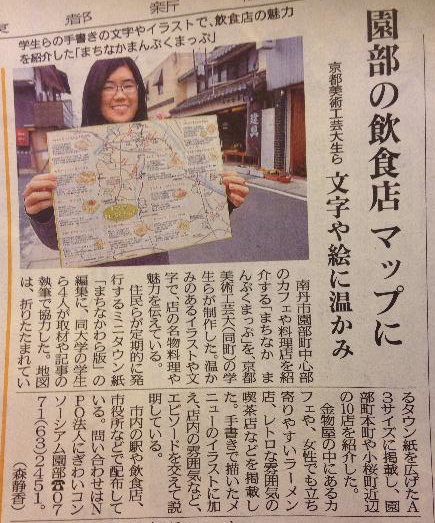 都　新
学生らの手書きの文字やイラストで、飲食店の魅力
を紹介した「まちなかまんぷくまっぷ」
園部の飲食店 マップに
京都美術工芸大生ら
文字や絵に温かみ
建具
南丹市園部町中心部
のカフェや料理店を紹
介する「まちなか ま
んぷくまっぷ」を、京都
美術工芸大（同町）の学
生らが制作した。温か
みのあるイラストや文
字で、店の名物料理や
魅力を伝えている。
住民らが定期的に発
行するミニタウン紙
「まちなかわら版」の
編集に、同大学の学生
ら4人が取材や記事の
執筆で協力した。地図
は、折りたたまれてい
るタウン紙を広げたA
3サイズに掲載し、園
部町本町や小桜町近辺
の10店を紹介した。
金物屋の中にあるカ
フェや、女性でも立ち
寄りやすいラーメン
店、レトロな雰囲気の
喫茶店などを掲載し
た。手書きで描いたメ
ニューのイラストに加
え、店内の雰囲気など、
エピソードを交えて説
明している。
市内の駅や飲食店、
市役所などで配布して
いる。問い合わせはN
PO法人にぎわいコン
ソーシアム園部☎07
71（63）2451。
（森静香）